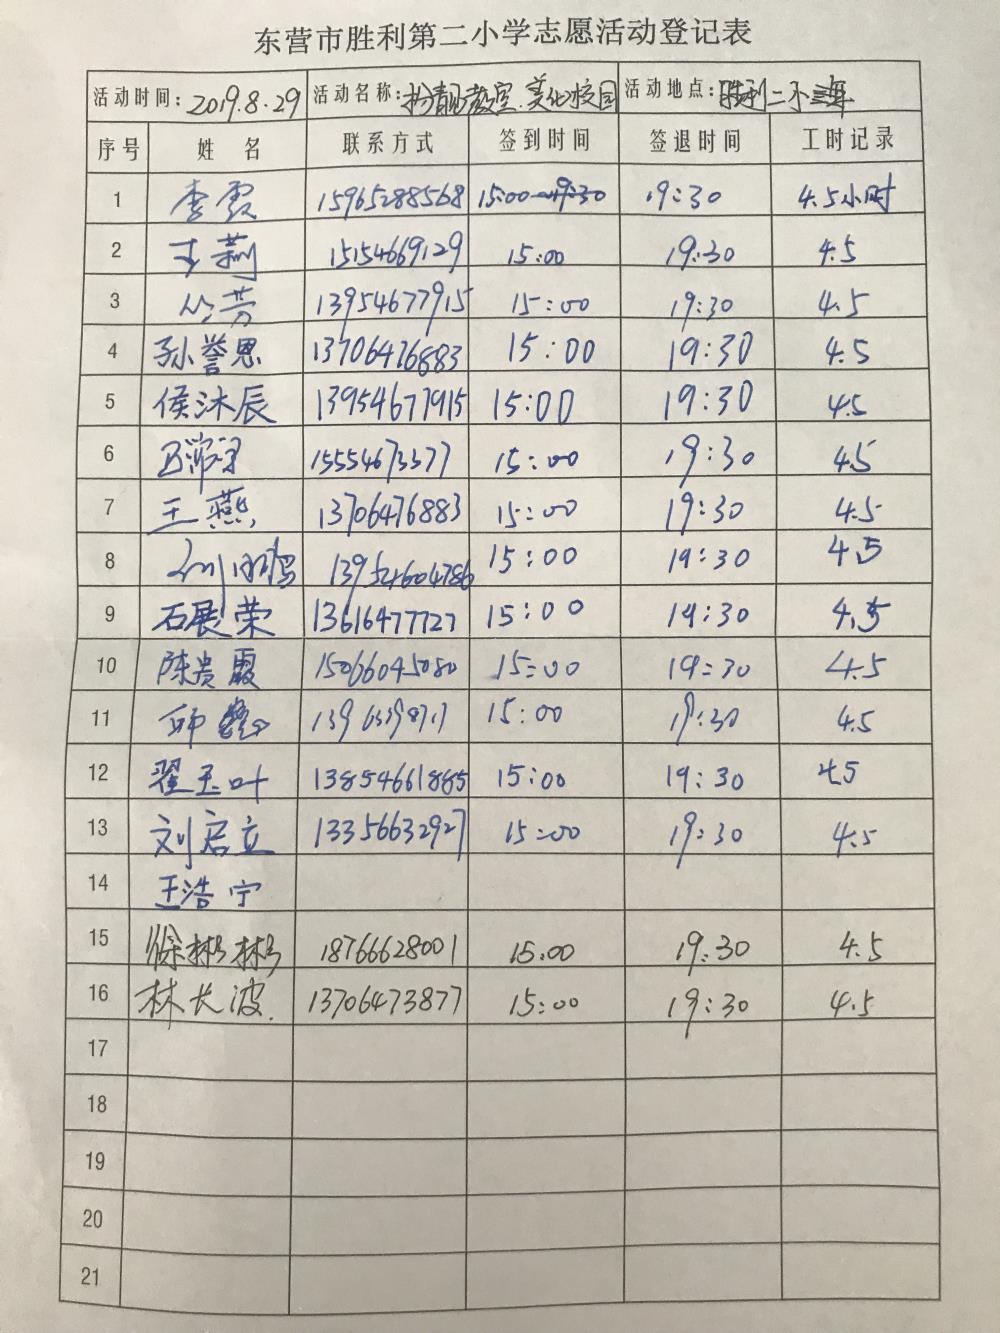 东营市胜利第二小学志愿活动登记表
活动时间: 2019.8.29 活动名称: 扮靓教室.美化校园 活动地点: 胜利二小
序号 姓 名 联系方式 签到时间 签退时间 工时记录
1 李霞 15965288568 15:00 19:30 4.5小时
2 王莉 15154669129 15:00 19:30 4.5
3 丛芳 13954677915 15:00 19:30 4.5
4 孙誉恩 13706476883 15:00 19:30 4.5
5 侯沐辰 13954677915 15:00 19:30 4.5
6 15554673377 15:00 19:30 4.5
7 王燕 13706476883 15:00 19:30 4.5
8 15:00 19:30 4.5
9 石展荣 13616477727 15:00 19:30 4.5
10 陈贵霞 15066045080 15:00 19:30 4.5
11 15:00 19:30 4.5
12 翟玉叶 13854661885 15:00 19:30 4.5
13 刘启立 13356632927 15:00 19:30 4.5
14 王浩宁
15 徐彬彬 18766628001 15:00 19:30 4.5
16 林长波. 13706473877 15:00 19:30 4.5
17
18
19
20
21